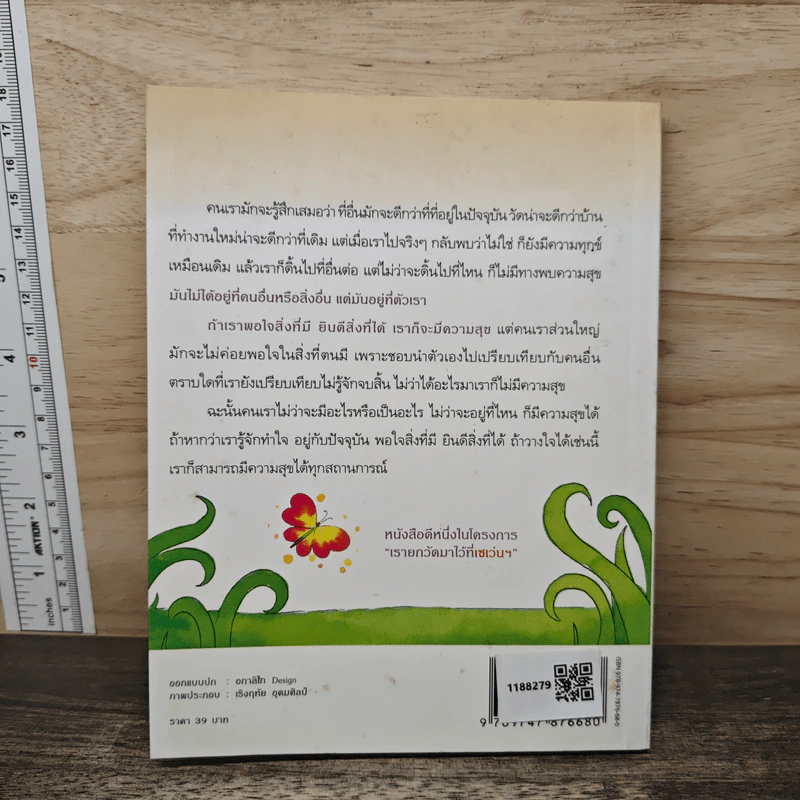 คนเรามักจะรู้สึกเสมอว่า ที่อื่นมักจะดีกว่าที่ที่อยู่ในปัจจุบัน วัดน่าจะดีกว่าบ้าน
ที่ทำงานใหม่น่าจะดีกว่าที่เดิม แต่เมื่อเราไปจริงๆ กลับพบว่าไม่ใช่ ก็ยังมีความทุกข์
เหมือนเดิม แล้วเราก็ดิ้นไปที่อื่นต่อ แต่ไม่ว่าจะดิ้นไปที่ไหน ก็ไม่มีทางพบความสุข
มันไม่ได้อยู่ที่คนอื่นหรือสิ่งอื่น แต่มันอยู่ที่ตัวเรา
ถ้าเราพอใจสิ่งที่มี ยินดีสิ่งที่ได้ เราก็จะมีความสุข แต่คนเราส่วนใหญ่
มักจะไม่ค่อยพอใจในสิ่งที่ตนมี เพราะชอบนำตัวเองไปเปรียบเทียบกับคนอื่น
ตราบใดที่เรายังเปรียบเทียบไม่รู้จักจบสิ้น ไม่ว่าได้อะไรมาเราก็ไม่มีความสุข
ฉะนั้นคนเราไม่ว่าจะมีอะไรหรือเป็นอะไร ไม่ว่าจะอยู่ที่ไหน ก็มีความสุขได้
ถ้าหากว่าเรารู้จักทำใจ อยู่กับปัจจุบัน พอใจสิ่งที่มี ยินดีสิ่งที่ได้ ถ้าวางใจได้เช่นนี้
เราก็สามารถมีความสุขได้ทุกสถานการณ์
หนังสือดีหนึ่งในโครงการ
"เรายกวัดมาไว้ที่เซเว่นฯ"
ออกแบบปก : อกาลิโก Design
ภาพประกอบ : เริงฤทัย อุดมศิลป์
ราคา 39 บาท
1188279
ISBN 978-974-7876-68-0
inches
AKTION
1
2
3
4
5
10
1
2
3
4
5
6
7
8
9
11
12
13
14
15
16
17
18